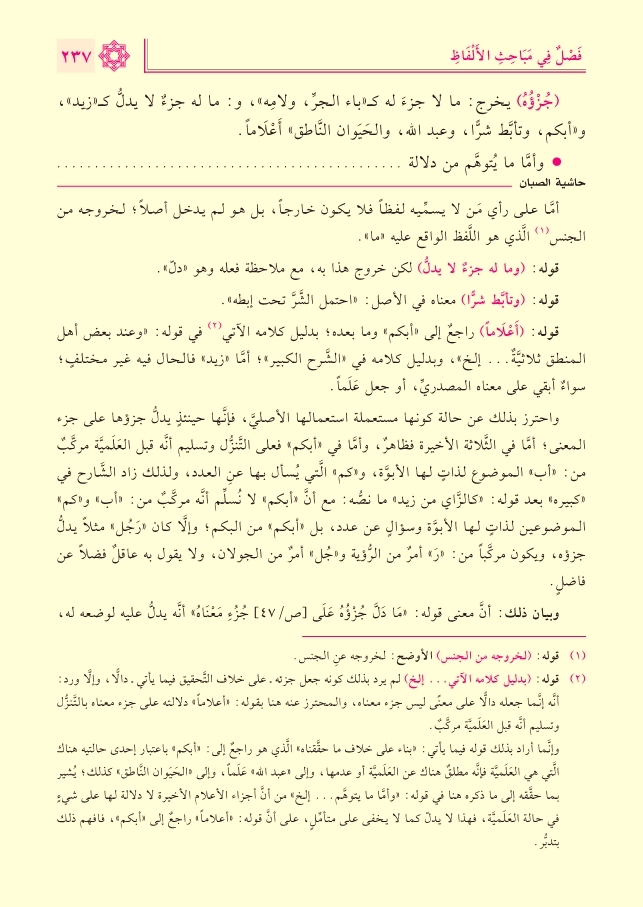 فَصْلٌ فِي مَبَاحِثِ الأَلْفَاظِ
٢٣٧
(جُزْؤُهُ) يخرج: ما لا جزءَ له كـ«باء الجرِّ، ولامِه»، و: ما له جزءٌ لا يدلُّ كـ«زيد»،
و«أبكم، وتأبَّط شرًّا، وعبد الله، والحَيَوان النَّاطق» أَعْلَاماً.
• وأمَّا ما يُتوهَّم من دلالة ............................................
حاشية الصبان
أمَّا على رأي مَن لا يسمِّيه لفظاً فلا يكون خارجاً، بل هو لم يدخل أصلاً؛ لخروجه من
الجنس(١) الَّذي هو اللَّفظ الواقع عليه «ما».
قوله: (وما له جزءٌ لا يدلُّ) لكن خروج هذا به، مع ملاحظة فعله وهو «دلّ».
قوله: (وتأبَّط شرًّا) معناه في الأصل: «احتمل الشَّرَّ تحت إبطه».
قوله: (أَعْلَاماً) راجعٌ إلى «أبكم» وما بعده؛ بدليل كلامه الآتي(٢) في قوله: «وعند بعض أهل
المنطق ثلاثيَّةٌ... إلخ»، وبدليل كلامه في «الشَّرح الكبير»؛ أمَّا «زيد» فالحال فيه غير مختلفٍ؛
سواءٌ أبقي على معناه المصدريِّ، أو جعل عَلَماً.
واحترز بذلك عن حالة كونها مستعملة استعمالها الأصليَّ، فإنَّها حينئذٍ يدلُّ جزؤها على جزء
المعنى؛ أمَّا في الثَّلاثة الأخيرة فظاهرٌ، وأمَّا في «أبكم» فعلى التَّنزُّل وتسليم أنَّه قبل العَلَميَّة مركَّبٌ
من: «أب» الموضوع لذاتٍ لها الأبوَّة، و«كم» الَّتي يُسأل بها عنِ العدد، ولذلك زاد الشَّارح في
«كبيره» بعد قوله: «كالزَّاي من زيد» ما نصُّه: مع أنَّ «أبكم» لا نُسلِّم أنَّه مركَّبٌ من: «أب» و«كم»
الموضوعين لذاتٍ لها الأبوَّة وسؤالٍ عن عدد، بل «أبكم» من البكم؛ وإلَّا كان «رَجُل» مثلاً يدلُّ
جزؤه، ويكون مركَّباً من: «رَ» أمرٌ من الرُّؤية و«جُل» أمرٌ من الجولان، ولا يقول به عاقلٌ فضلاً عن
فاضلٍ.
وبيان ذلك: أنَّ معنى قوله: «مَا دَلَّ جُزْؤُهُ عَلَى [ص/٤٧] جُزْءِ مَعْنَاهُ» أنَّه يدلُّ عليه لوضعه له،
(١) قوله: (لخروجه من الجنس) الأوضح: لخروجه عنِ الجنس.
(٢) قوله: (بدليل كلامه الآتي... إلخ) لم يرد بذلك كونه جعل جزئه ـ على خلاف التَّحقيق فيما يأتي ـ دالًّا، وإلَّا ورد:
أنَّه إنَّما جعله دالًّا على معنًى ليس جزء معناه، والمحترز عنه هنا بقوله: «أعلاماً» دلالته على جزء معناه بالتَّنزُّل
وتسليم أنَّه قبل العَلَميَّة مركَّبٌ.
وإنَّما أراد بذلك قوله فيما يأتي: «بناء على خلاف ما حقَّقناه» الَّذي هو راجعٌ إلى: «أبكم» باعتبار إحدى حالتيه هناك
الَّتي هي العَلَميَّة فإنَّه مطلقٌ هناك عن العَلَميَّة أو عدمها، وإلى «عبد الله» عَلَماً، وإلى «الحَيَوان النَّاطق» كذلك؛ يُشير
بما حقَّقه إلى ما ذكره هنا في قوله: «وأمَّا ما يتوهَّم... إلخ» من أنَّ أجزاء الأعلام الأخيرة لا دلالة لها على شيءٍ
في حالة العَلَميَّة، فهذا لا يدلّ كما لا يخفى على متأمِّلٍ، على أنَّ قوله: «أعلاماً» راجعٌ إلى «أبكم»، فافهم ذلك
بتدبُّر.